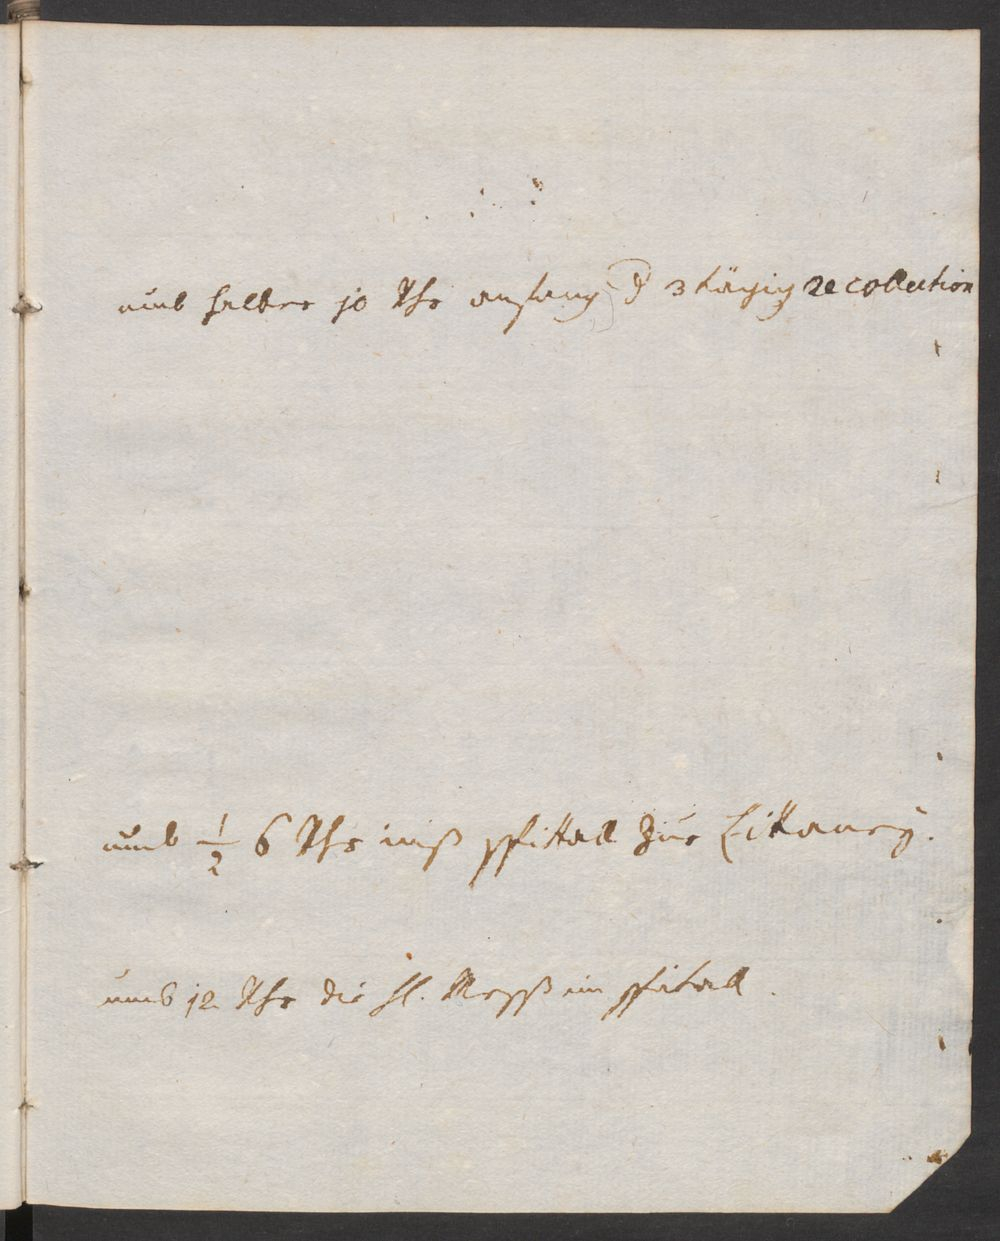 umb halber 10 Uhr anfang d 3 tägig Recollection
umb 1/2 6 Uhr inß spittall zur Littaney.
umb 12 Uhr die hl. Messß im spitall.